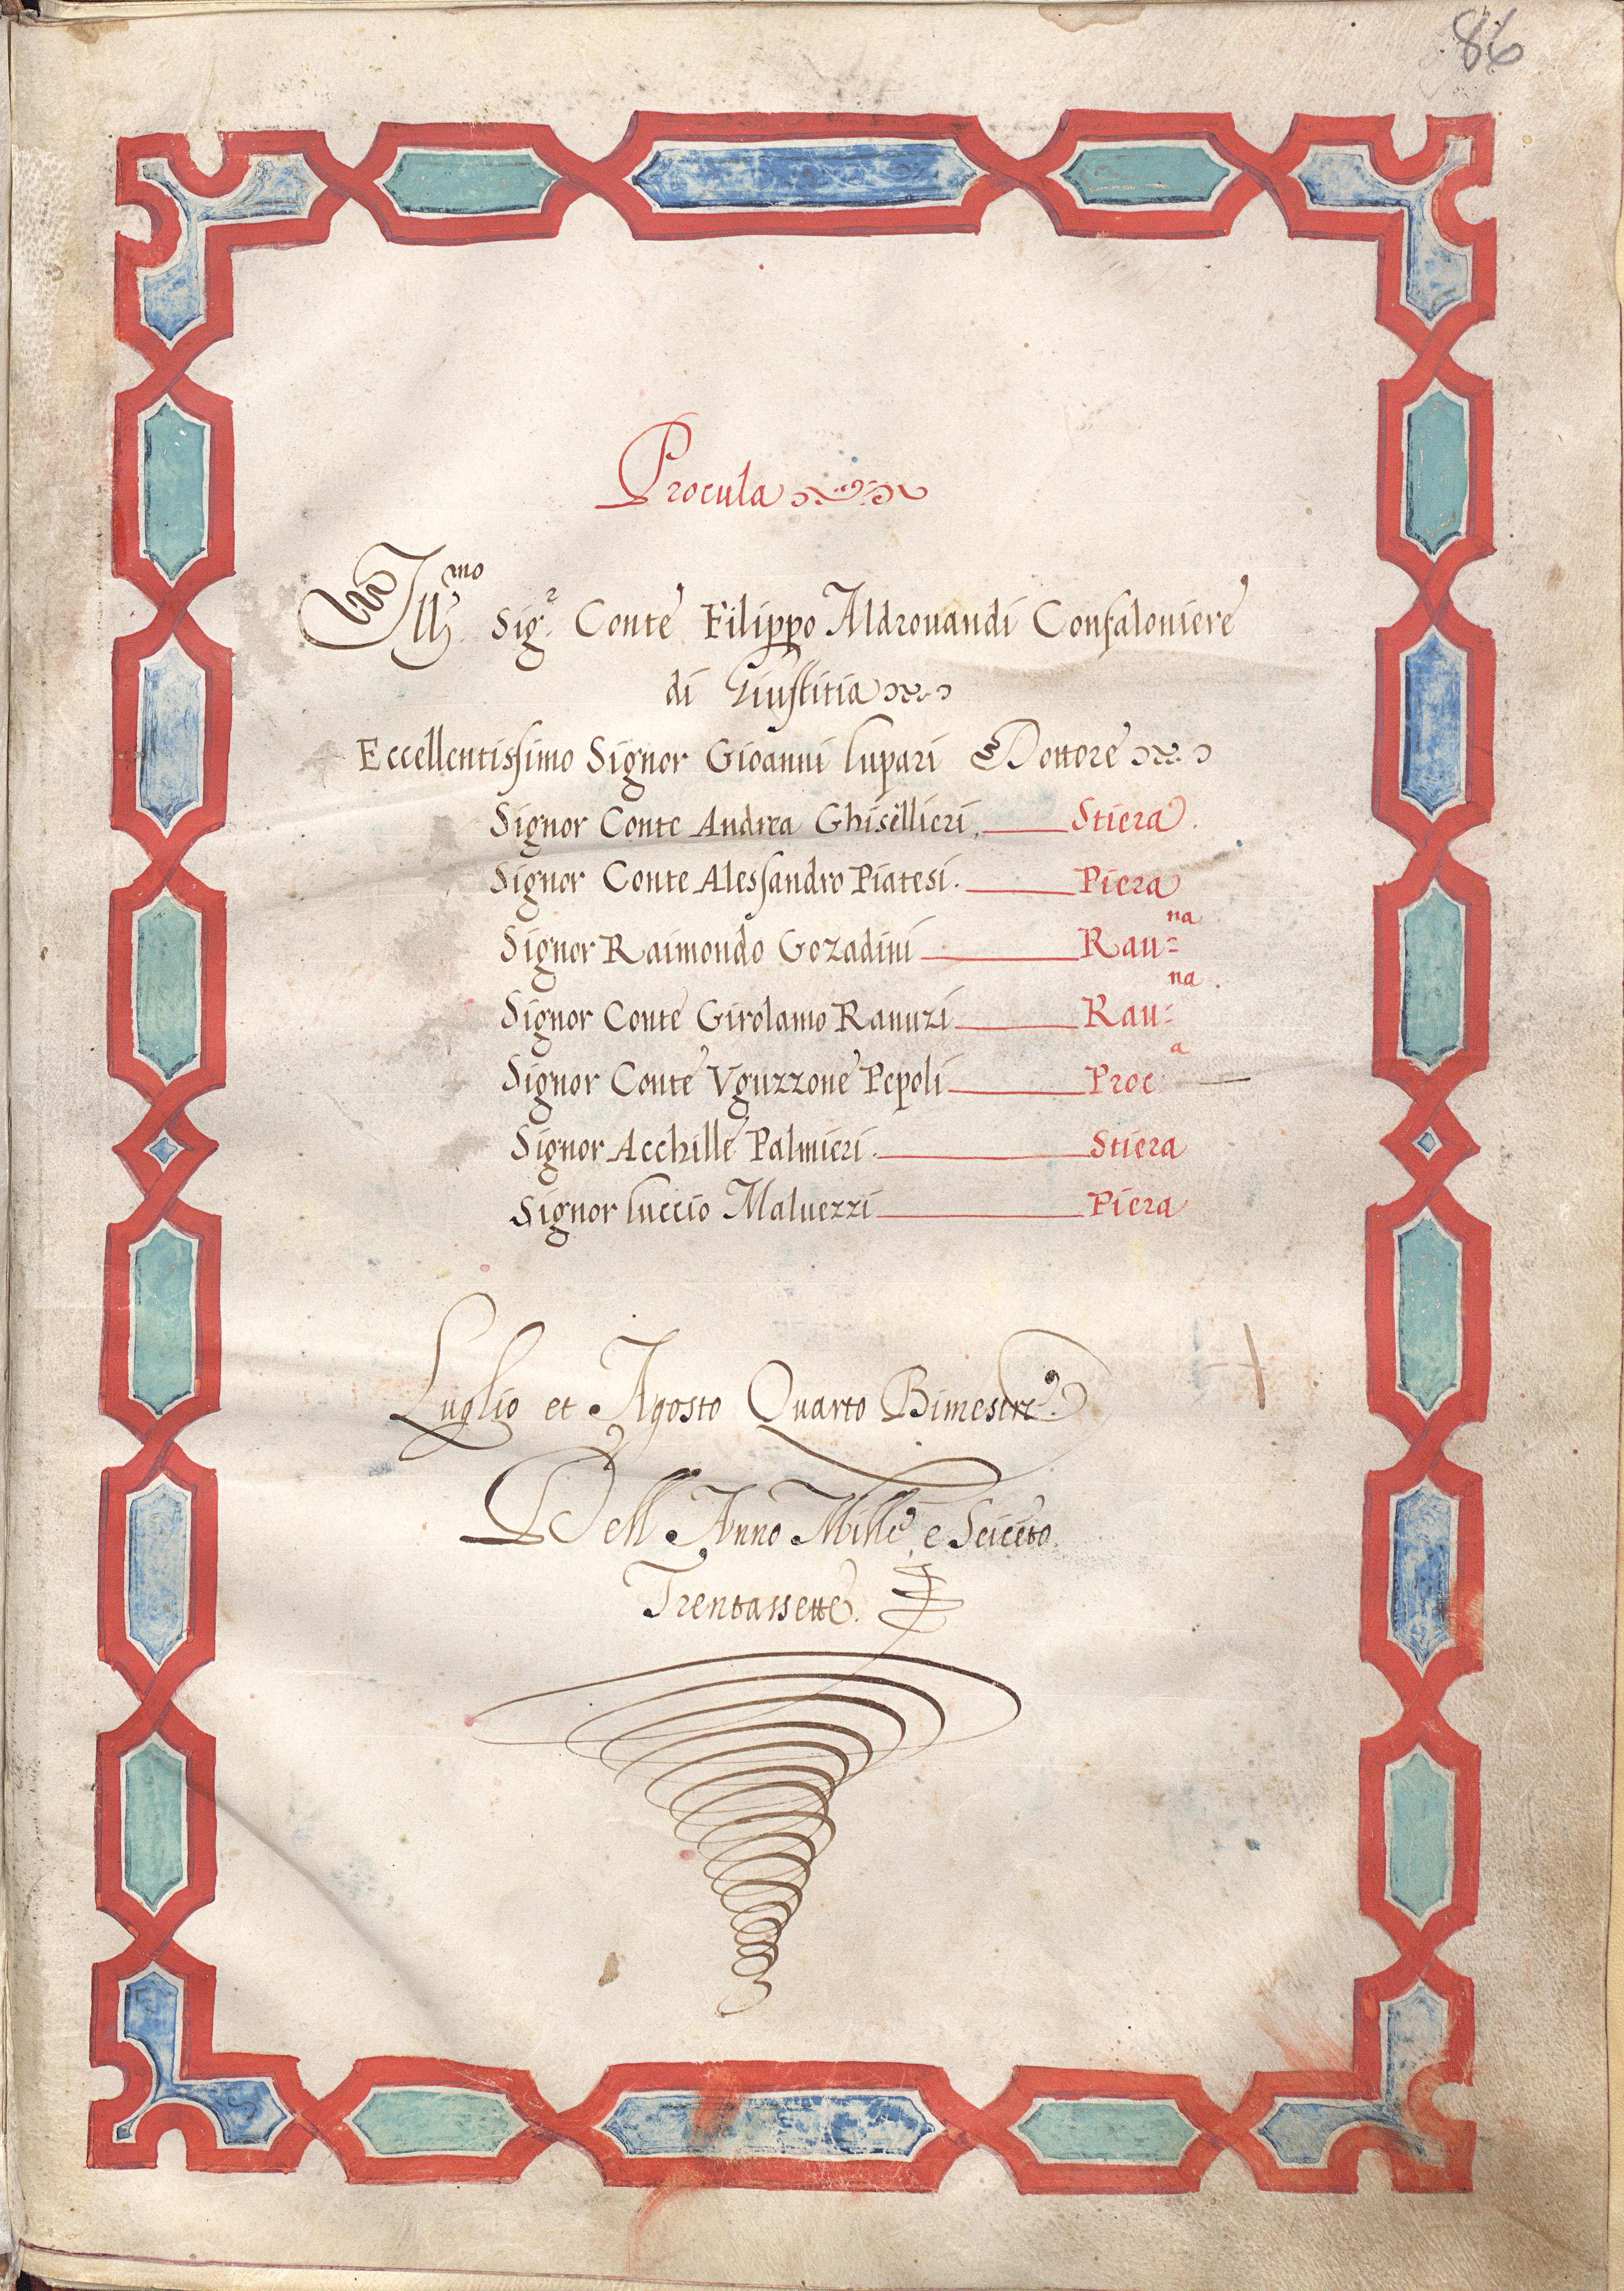 86
Procula
Ill.mo Sig.r Conte Filippo Aldrouandi Confaloniere
di Giustitia
Eccellentissimo Signor Gioanni lupari Dottore
Signor Conte Andrea Ghisellieri. Stiera.
Signor Conte Alessandro Piatesi. Piera
Signor Raimondo Gozadini Rau=na
Signor Conte Girolamo Ranuzi Rau:na.
Signor Conte Vguzzone Pepoli Proc:a
Signor Acchille Palmieri. Stiera
Signor luccio Maluezzi Piera
Luglio et Agosto Quarto Bimestre.
Dell Anno Mille e Seicēto.
Trentassette.